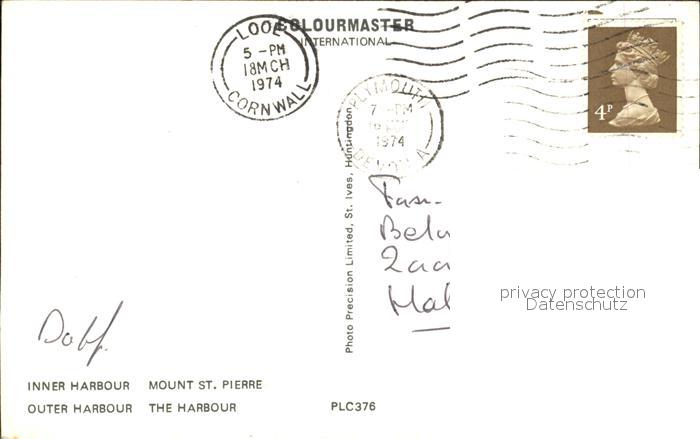 COLOURMASTER
INTERNATIONAL
LOOE
5 -PM
18MCH
1974
CORNWALL
PLYMOUTH
7 -PM
1974
DEVON A
4P
Photo Precision Limited, St. Ives, Huntingdon
privacy protection
Datenschutz
INNER HARBOUR MOUNT ST. PIERRE
OUTER HARBOUR THE HARBOUR PLC376